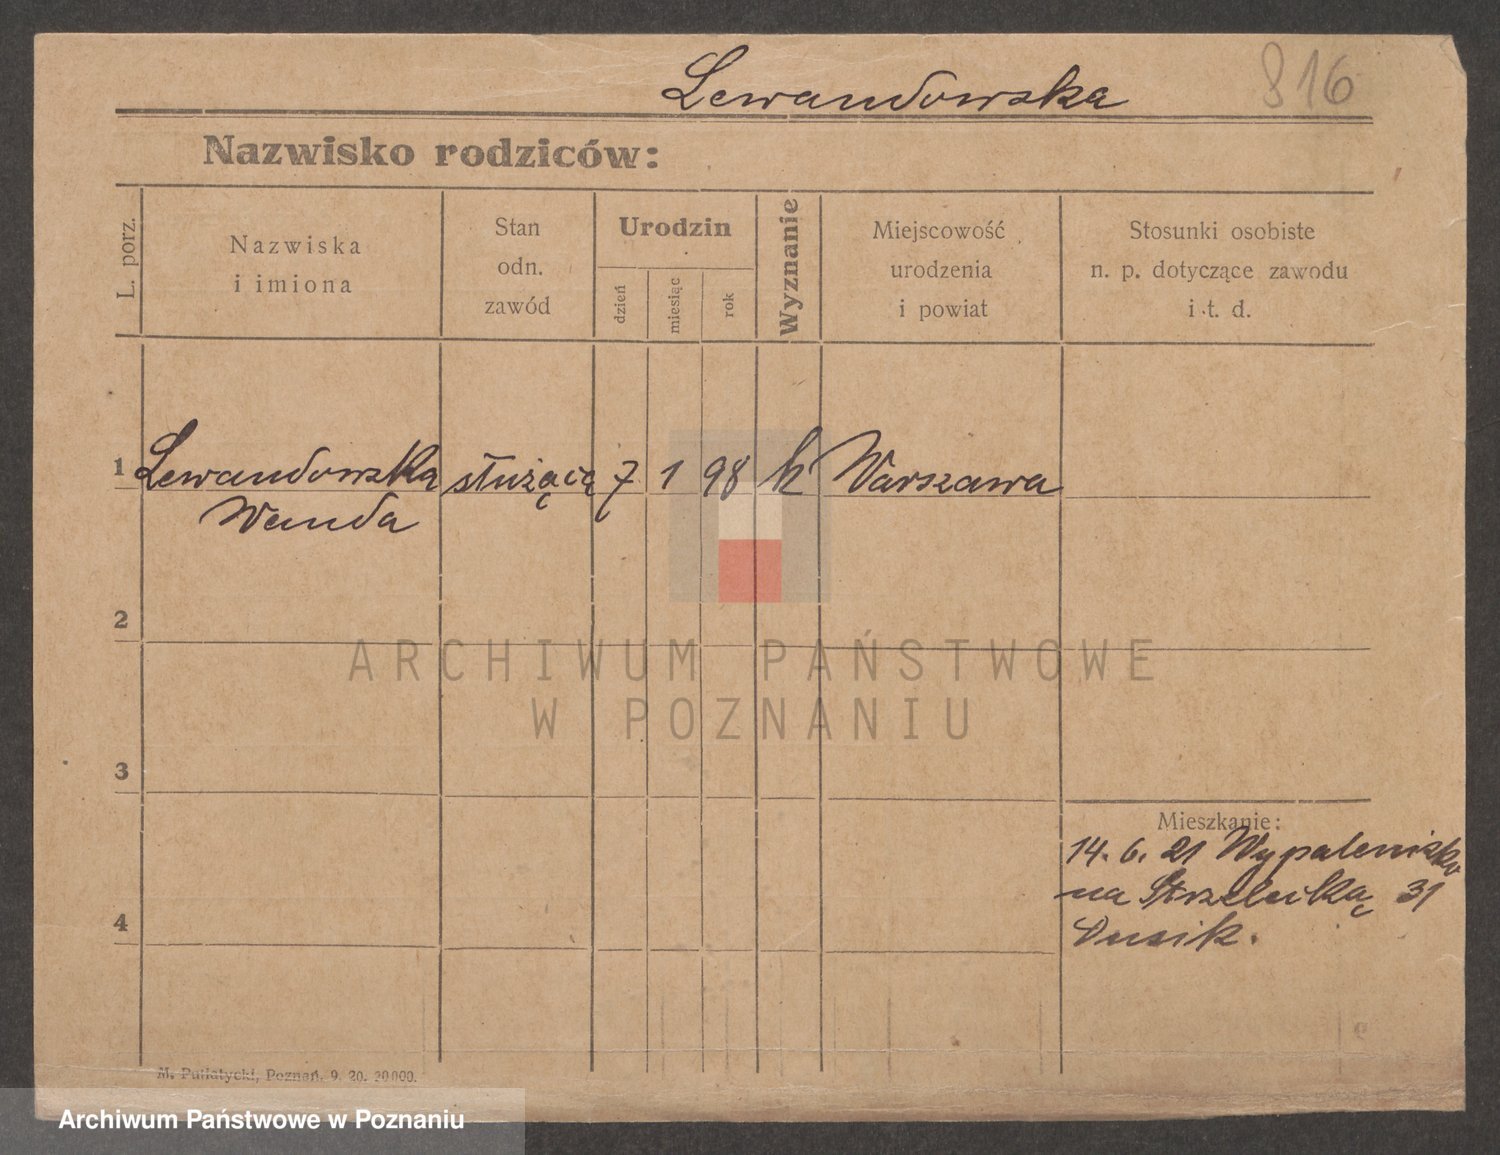 Lewandowska 816
Nazwisko rodziców:
L. porz.
Nazwiska
i imiona
Stan
odn.
zawód
Urodzin
dzień
miesiąc
rok
Wyznanie
Miejscowość
urodzenia
i powiat
Stosunki osobiste
n. p. dotyczące zawodu
i t. d.
1 Lewandowska służącą 7 1 98 k Warszawa
Wanda
2
ARCHIWUM PAŃSTWOWE
W POZNANIU
3
Mieszkanie:
14. 6. 21 Wypalenisko
na Strzelecką 31
4
Dusik.
M. Putiatycki, Poznań, 9. 20. 20000.
Archiwum Państwowe w Poznaniu